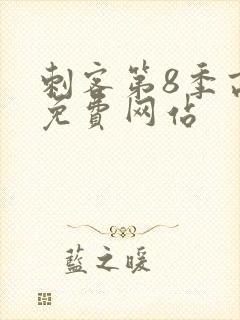 刺客第8季
免費网佔
藍之暖